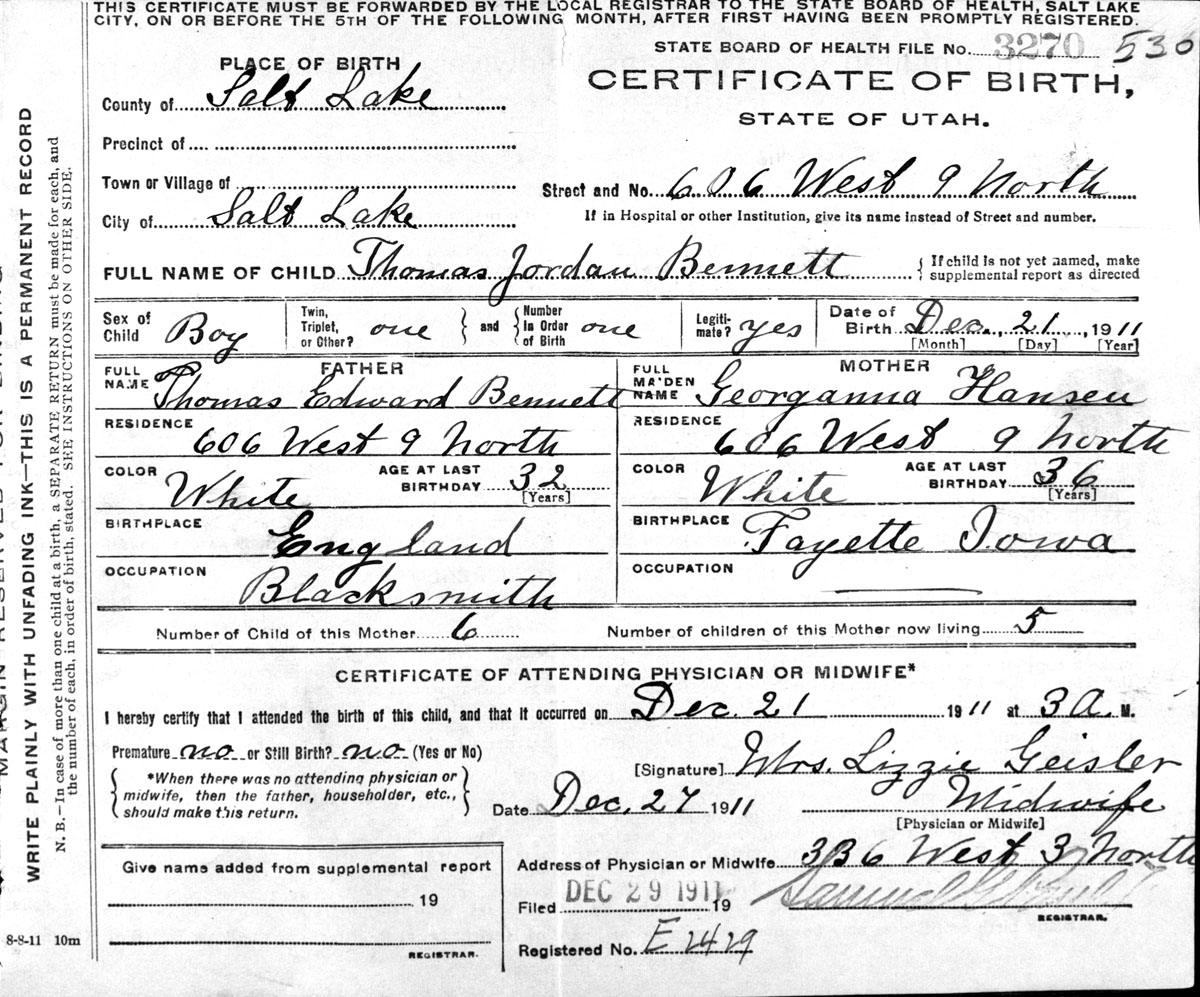 THIS CERTIFICATE MUST BE FORWARDED BY THE LOCAL REGISTRAR TO THE STATE BOARD OF HEALTH, SALT LAKE
CITY, ON OR BEFORE THE 5TH OF THE FOLLOWING MONTH, AFTER FIRST HAVING BEEN PROMPTLY REGISTERED.
STATE BOARD OF HEALTH FILE No. 3270 530
PLACE OF BIRTH
CERTIFICATE OF BIRTH,
STATE OF UTAH.
County of Salt Lake
Precinct of
Town or Village of
Street and No. 606 West 9 North
City of Salt Lake
If in Hospital or other Institution, give its name instead of Street and number.
FULL NAME OF CHILD Thomas Jordan Bennett { If child is not yet named, make
supplemental report as directed
Sex of Child Boy
Twin, Triplet, or Other? one } and { Number In Order of Birth one
Legiti-mate? yes
Date of Birth Dec., 21, 1911
[Month] [Day] [Year]
FATHER
MOTHER
FULL NAME Thomas Edward Bennett
FULL MAIDEN NAME Georganna Hansen
RESIDENCE 606 West 9 North
RESIDENCE 606 West 9 North
COLOR White AGE AT LAST BIRTHDAY 32 [Years]
COLOR White AGE AT LAST BIRTHDAY 36 [Years]
BIRTHPLACE England
BIRTHPLACE Fayette Iowa
OCCUPATION Blacksmith
OCCUPATION
Number of Child of this Mother 6 Number of children of this Mother now living 5
CERTIFICATE OF ATTENDING PHYSICIAN OR MIDWIFE*
I hereby certify that I attended the birth of this child, and that it occurred on Dec. 21 1911 at 3 A. M.
Premature no or Still Birth? no (Yes or No)
{ *When there was no attending physician or
midwife, then the father, householder, etc.,
should make this return. }
[Signature] Mrs. Lizzie Geisler
Date Dec. 27 1911 Midwife
[Physician or Midwife]
Give name added from supplemental report
19
REGISTRAR.
Address of Physician or Midwife 336 West 3 North
Filed DEC 29 1911 19
REGISTRAR.
Registered No. E 2429
8-8-11 10m
WRITE PLAINLY WITH UNFADING INK—THIS IS A PERMANENT RECORD
N. B.—In case of more than one child at a birth, a SEPARATE RETURN must be made for each, and
the number of each, in order of birth, stated. SEE INSTRUCTIONS ON OTHER SIDE.